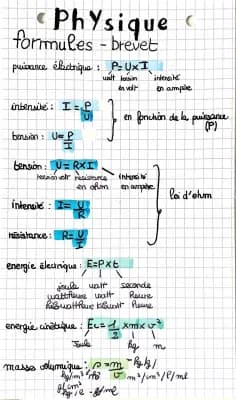 Physique
formules - brevet
puissance électrique : P=U×I
watt tension intensité
en volt en ampère
intensité : I = P/U
en fonction de la puissance
(P)
tension : U = P/I
tension : U = R×I
tension volt résistance intensité
en ohm en ampère
loi d'ohm
intensité : I = U/R
résistance : R = U/I
energie électrique : E=P×t
joule watt seconde
wattheure watt heure
kilowattheure kilowatt heure
energie cinétique : Ec = 1/2 × m × v²
Joule kg m
masse volumique : ρ = m/v kg/g/
kg/m³ m³/cm³/l/ml
g/cm³